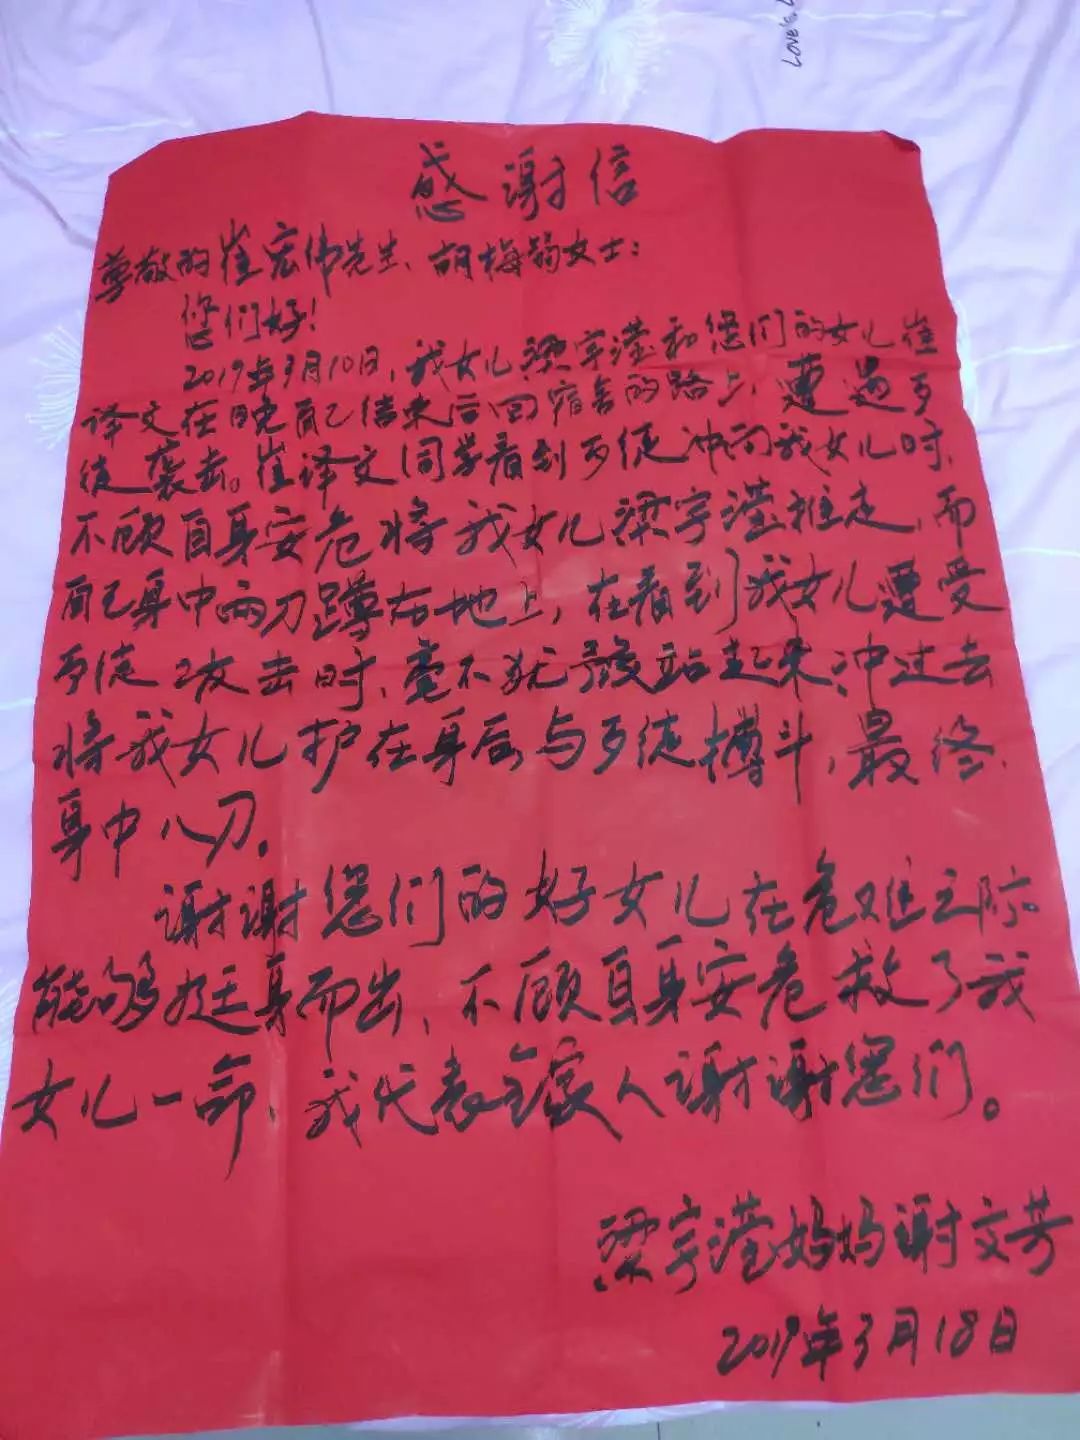 Love is L
感谢信
尊敬的崔宏伟先生、胡梅韵女士：
您们好！
2019年3月10日，我女儿梁宇滢和您们的女儿崔
译文在晚自己结束后回宿舍的路上，遭遇歹
徒袭击。崔译文同学看到歹徒冲向我女儿时，
不顾自身安危将我女儿梁宇滢推走，而
自己身中两刀蹲在地上，在看到我女儿遭受
歹徒攻击时，毫不犹豫站起来冲过去
将我女儿护在身后与歹徒搏斗，最终
身中八刀。
谢谢您们的好女儿在危难之际
能够挺身而出，不顾自身安危救了我
女儿一命，我代表全家人谢谢您们。
梁宇滢妈妈谢文芳
2019年3月18日